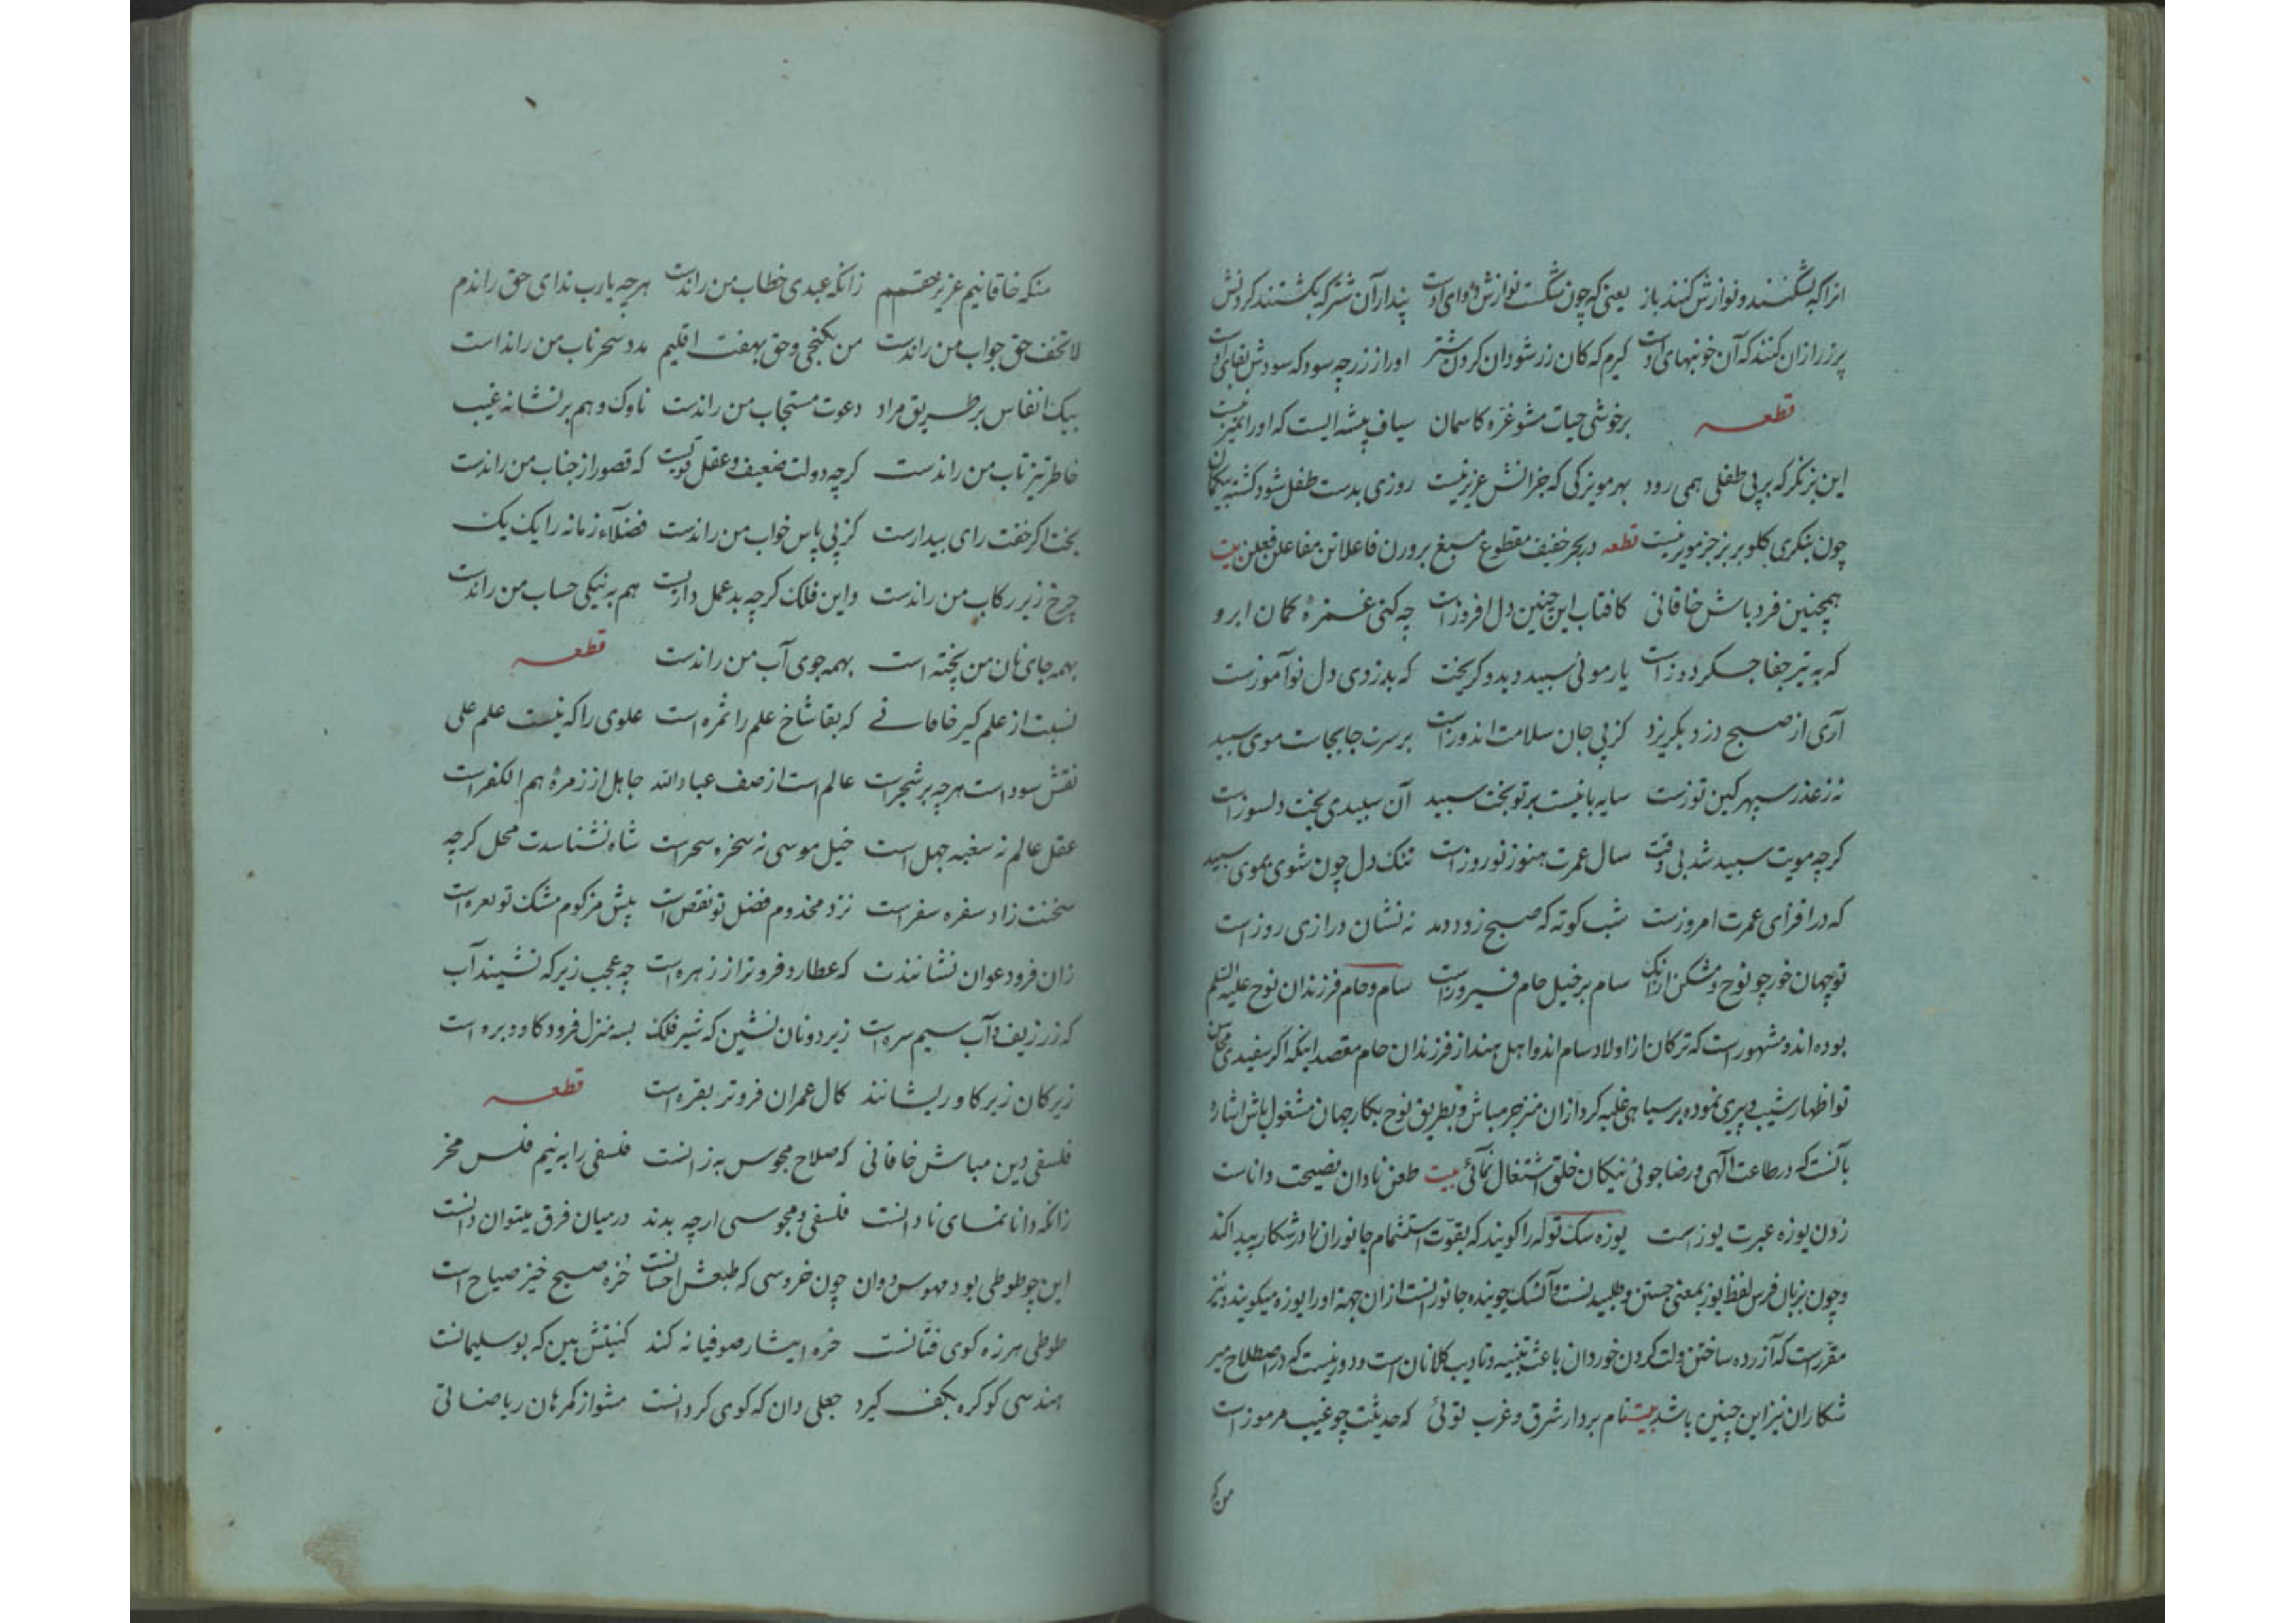 انرا که بشکنند و نوازش کنند باز یعنی که چون شکست نوازش دوای اوست پندار آن شتر که بکشتند کردنش
پر زر ازان کنند که آن خونبهای اوست کیرم که کان زر شود ان کردن شتر او را ز زر چه سود که سودش بقای اوست
قطعه برخوشی حیات مشو غره کاسمان سیاف پیشه ایست که او را تمیز نیست
این بز نکر که بر پی طفلی همی رود بهر مویزکی که جز انش عزیز نیست روزی بدست طفل شود کشته بیکمان
چون بنکری کلو بر بز جز مویز نیست قطعه در بحر خفیف مقطوع مسبغ بر وزن فاعلاتن مفاعلن فعلن بیت
همچنین فرد باش خاقانی کافتاب این چنین دل افروز است چه کنی غمزه کمان ابرو
که به تیر جفا جکر دوز است یار موئی سپید دید و کریخت که بدزدی دل نو آموزست
آری از صبح دزد بکریزد کز پی جان سلامت اندوز است بر سرت جابجاست موی سپید
نه ز غدر سپهر کین توزست سایه بانیست بر تو بخت سپید آن سپیدی بخت دلسوز است
کرچه مویت سپید شد بی وقت سال عمرت هنوز نوروز است تنک دل چون شوی بموی سپید
که در افزای عمرت امروزست شب کوته که صبح زود دمد نه نشان درازی روز است
تو جهان خور چو نوح و مشکن ازانک سام بر خیل حام فیروز است سام و حام فرزندان نوح علیه السلم
بوده اند و مشهور است که ترکان از اولاد سام اند و اهل هند از فرزندان حام مقصد اینکه اکر سفیدی محاسن
تو اظهار شیب و پیری نموده بر سیاهی غلبه کرد ازان منزجر مباش و بطریق نوح بکار جهان مشغول باش اشاره
بآنست که در طاعت الهی و رضا جوئی نیکان خلق اشتغال نمائی بیت طعن نادان نصیحت داناست
زدن یوزه عبرت یوز است یوزه سک توله را کویند که بقوت استشمام جانوران را در شکار پیدا کند
و چون بزبان فرس لفظ یوز بمعنی جستن و طلبیدنست و آن سک جوینده جانورانست از ان جهة او را یوزه میکویند و نیز
مقررست که آزرده ساختن و لت کردن خوردان باعث تنبیه و تادیب کلانان است و دور نیست که در اصطلاح میر
شکاران نیز این چنین باشد بیت نام بردار شرق و غرب توئی که حدیثت چو غیب مرموز است
من که
منکه خاقانیم عزیز حقم زانکه عبدی خطاب من راندست هر چه یارب ندای حق راندم
لا تخف حق جواب من راندست من بکنجی و حق بهفت اقلیم مدد سحر ناب من راندست
پیک انفاس بر طریق مراد دعوت مستجاب من راندست ناوک وهم بر نشانه غیب
خاطر تیز تاب من راندست کرچه دولت ضعیف و عقل قویست که قصور از جناب من راندست
بخت اکر خفت رای بیدارست کز پی پاس خواب من راندست فضلاء زمانه را یک یک
چرخ زیر رکاب من راندست واین فلک کرچه بد عمل داریست هم به نیکی حساب من راندست
بهمه جای نان من پخته است بهمه جوی آب من راندست قطعه
نسبت از علم کیر خاقانی که بقا شاخ علم را ثمره است علوی را که نیست علم علی
نقش سود است هر چه بر شجرست عالم است از صف عباد الله جاهل از زمره هم الکفر است
عقل عالم نه سغبه جهل است خیل موسی نه سخره سحر است شاه نشناسدت محل کرچه
سخنت زاد سفره سفر است نزد مخدوم فضل تو نقص است پیش مزکوم مشک تو بعره است
زان فرود عوان نشانندت که عطارد فروتر از زهره است چه عجب زیر که نشیند آب
که زر زیف و آب سیم سره است زیر دونان نشین که شیر فلک بسه منزل فرود کاو و بره است
زیرکان زیر کاو ریشانند کال عمران فروتر بقره است قطعه
فلسفی دین مباش خاقانی که صلاح مجوس به زانست فلسفی را به نیم فلس مخر
زانکه دانا نمای نادانست فلسفی و مجوسی ارچه بدند در میان فرق میتوان دانست
این چو طوطی بود مهوس و وان چون خروسی که طبعش احسانست خزه صبح خیز صیاح است
طوطی هرزه کوی فتانست خره ایثار صوفیانه کند کنیتش بین که بوسلیمانست
هندسی کو کره بکف کیرد جعلی دان که کوی کردانست مشو از کمرهان ریاضاتی